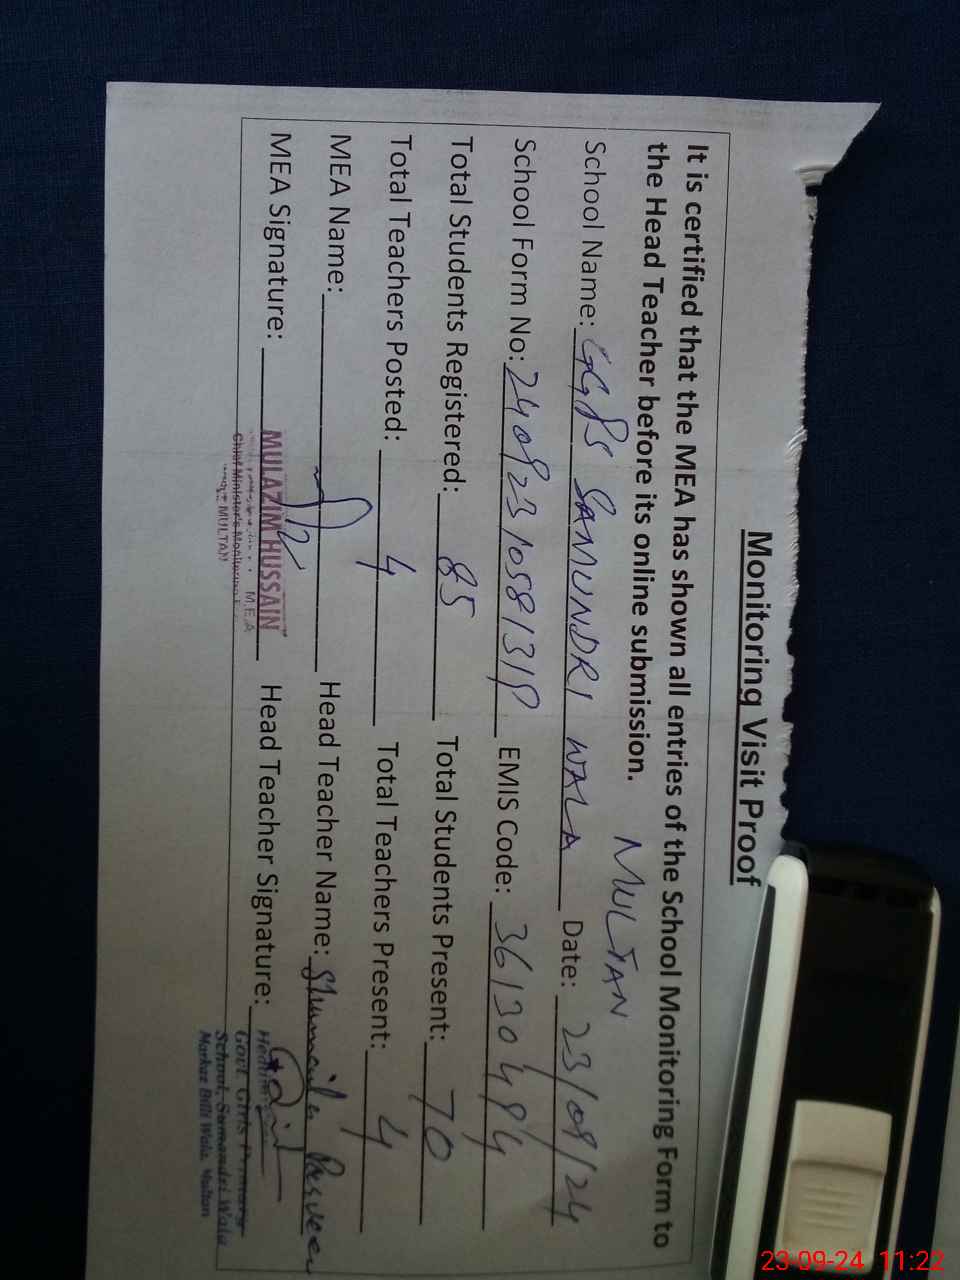 Monitoring Visit Proof
It is certified that the MEA has shown all entries of the School Monitoring Form to
the Head Teacher before its online submission.
MULTAN
School Name: GGPS SAMUNDRI WALA Date: 23/09/24
School Form No: EMIS Code: 36130494
Total Students Registered: 85 Total Students Present: 70
Total Teachers Posted: 4 Total Teachers Present: 4
MEA Name: Head Teacher Name: Shumaila Parveen
MEA Signature: Head Teacher Signature:
MULAZIM HUSSAIN
M.E.A
Chief Minister's Monitoring
MULTAN
Govt Girls Primary
School, Samandri Wala
Markaz Billi Wala, Multan
23-09-24 11:22